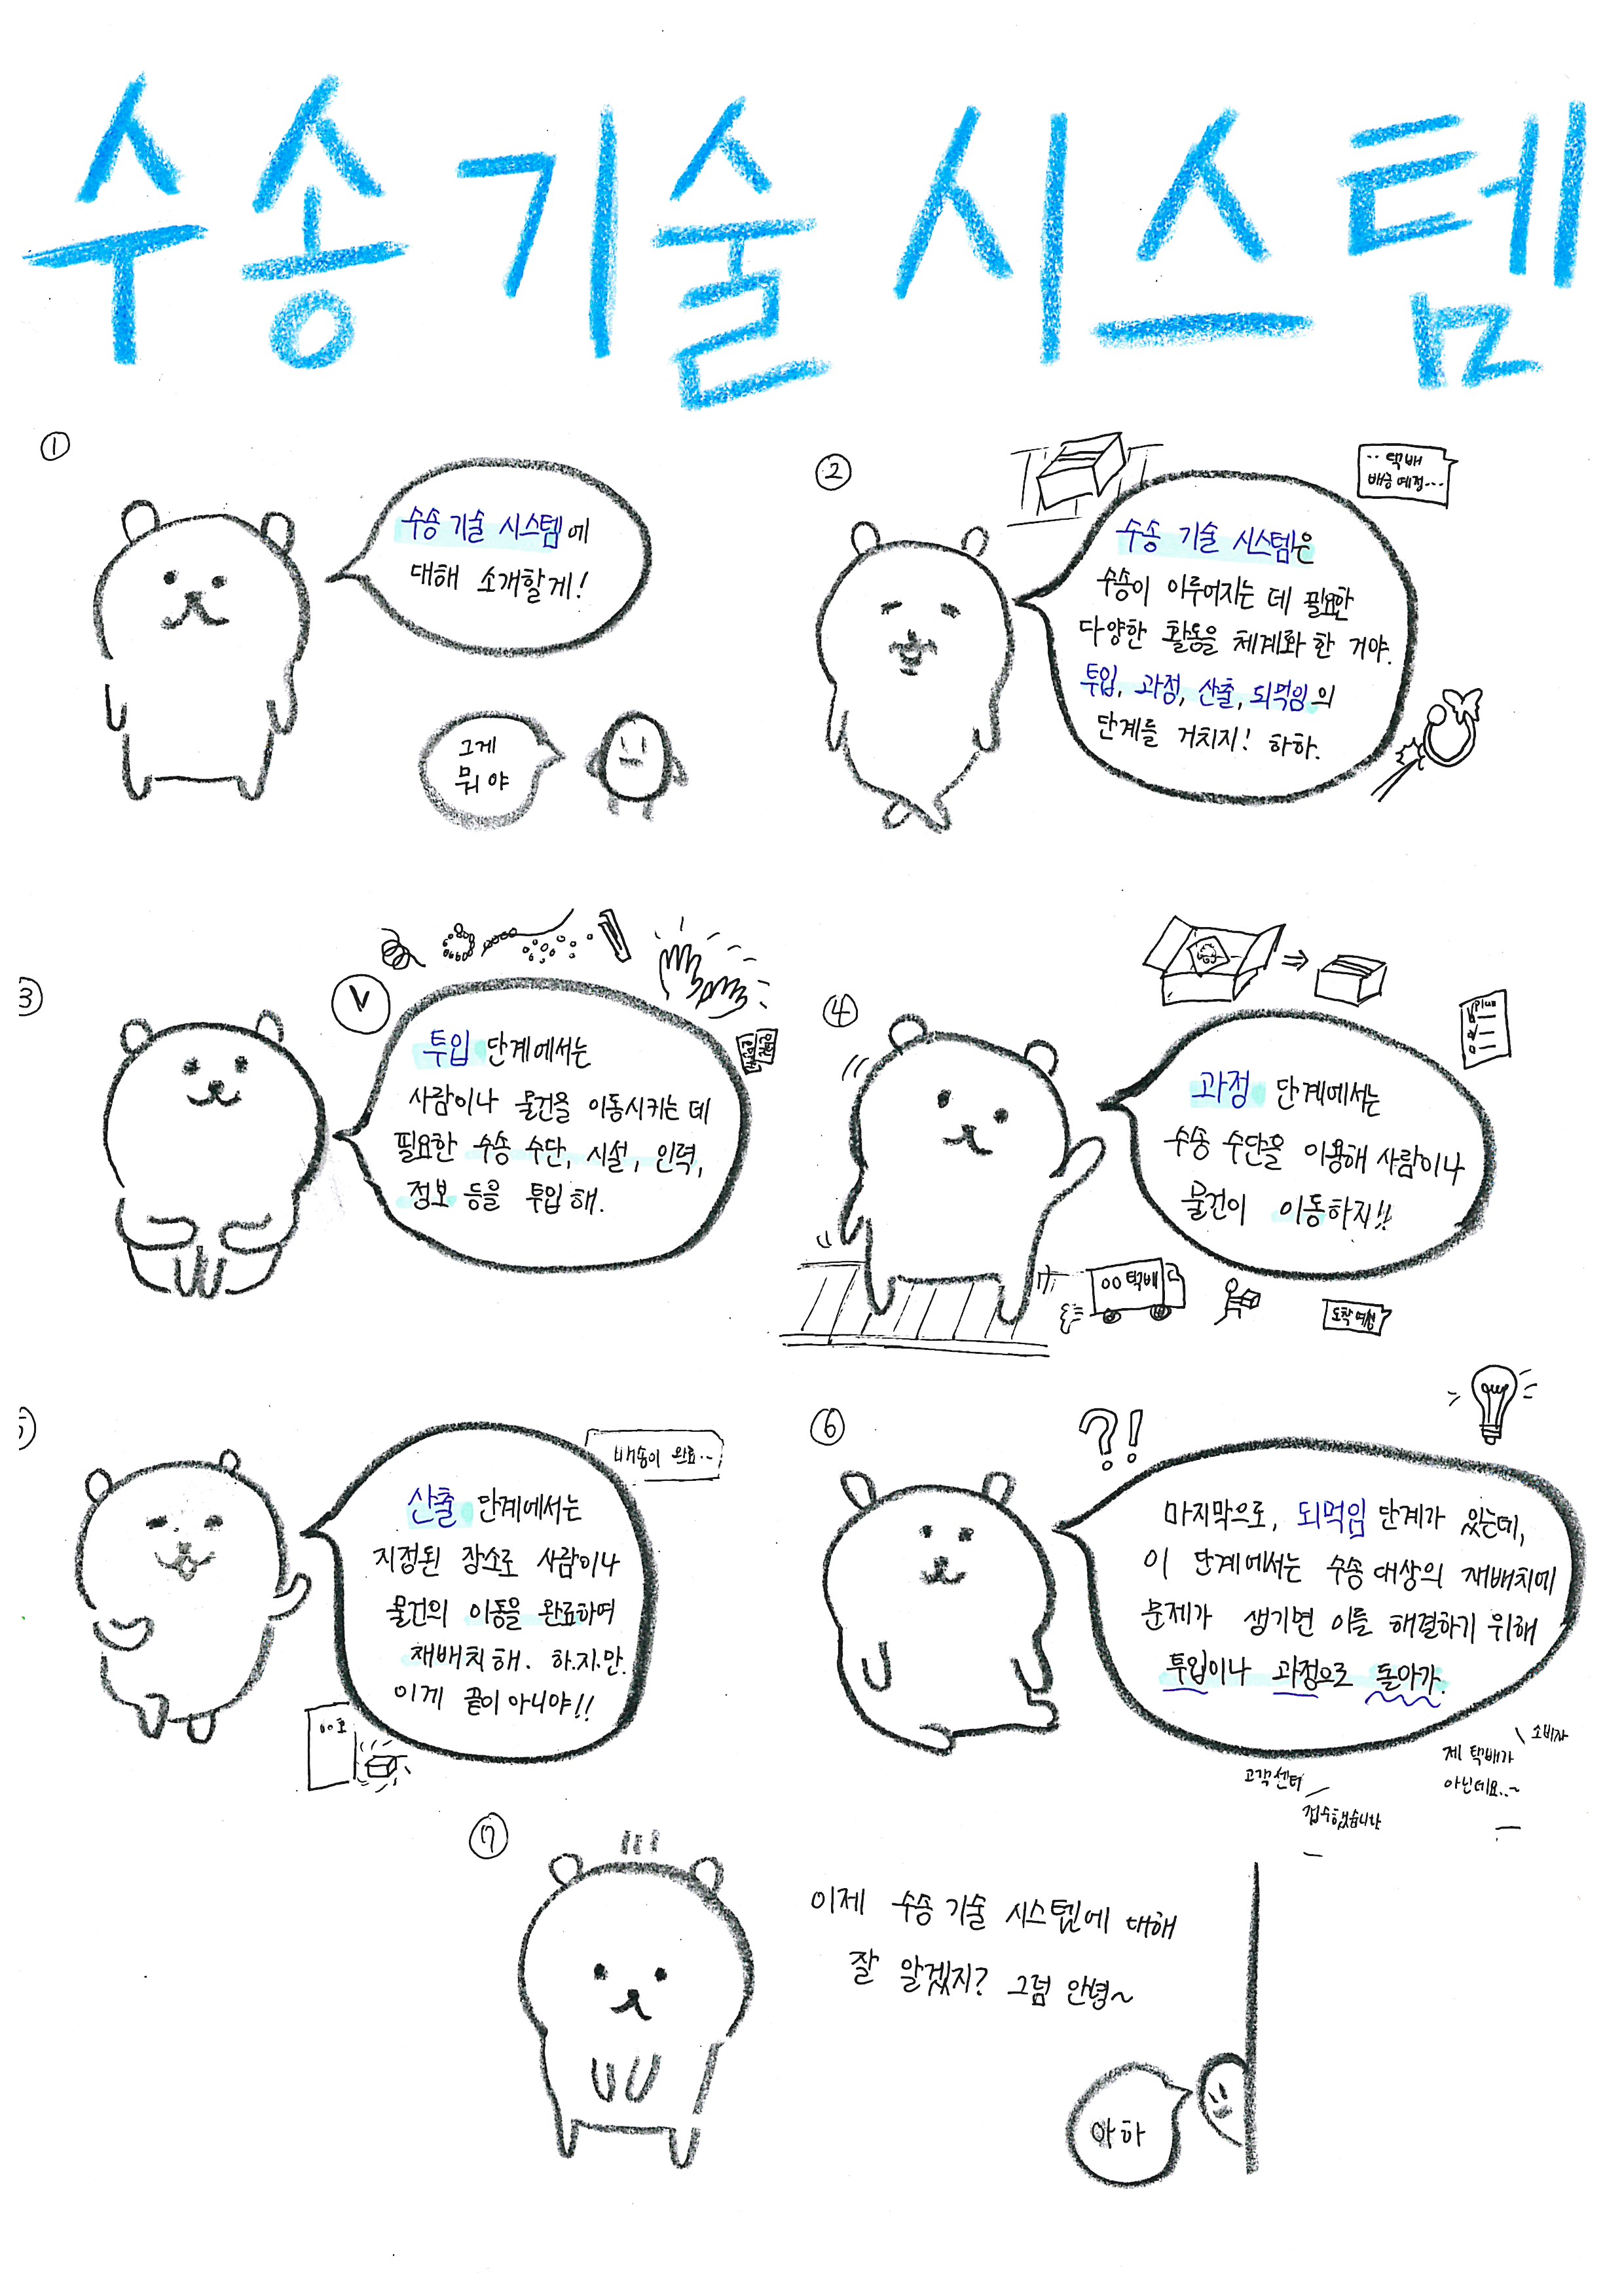 수송 기술 시스템
①
수송 기술 시스템에
대해 소개할게!
그게
뭐야
②
‥택배
배송예정…
수송 기술 시스템은
수송이 이루어지는 데 필요한
다양한 활동을 체계화 한 거야.
투입, 과정, 산출, 되먹임의
단계를 거치지! 하하.
③
V
투입 단계에서는
사람이나 물건을 이동시키는 데
필요한 수송 수단, 시설, 인력,
정보 등을 투입 해.
④
plan
과정 단계에서는
수송 수단을 이용해 사람이나
물건이 이동하지!!
00택배
도착예정
5
배송이 완료…
산출 단계에서는
지정된 장소로 사람이나
물건의 이동을 완료하여
재배치 해. 하.지.만.
이게 끝이 아니야!!
00호
⑥
?!
마지막으로, 되먹임 단계가 있는데,
이 단계에서는 수송 대상의 재배치에
문제가 생기면 이를 해결하기 위해
투입이나 과정으로 돌아가.
소비자
제 택배가
아닌데요..~
고객센터
접수했습니다
⑦
이제 수송 기술 시스템에 대해
잘 알겠지? 그럼 안녕~
아하